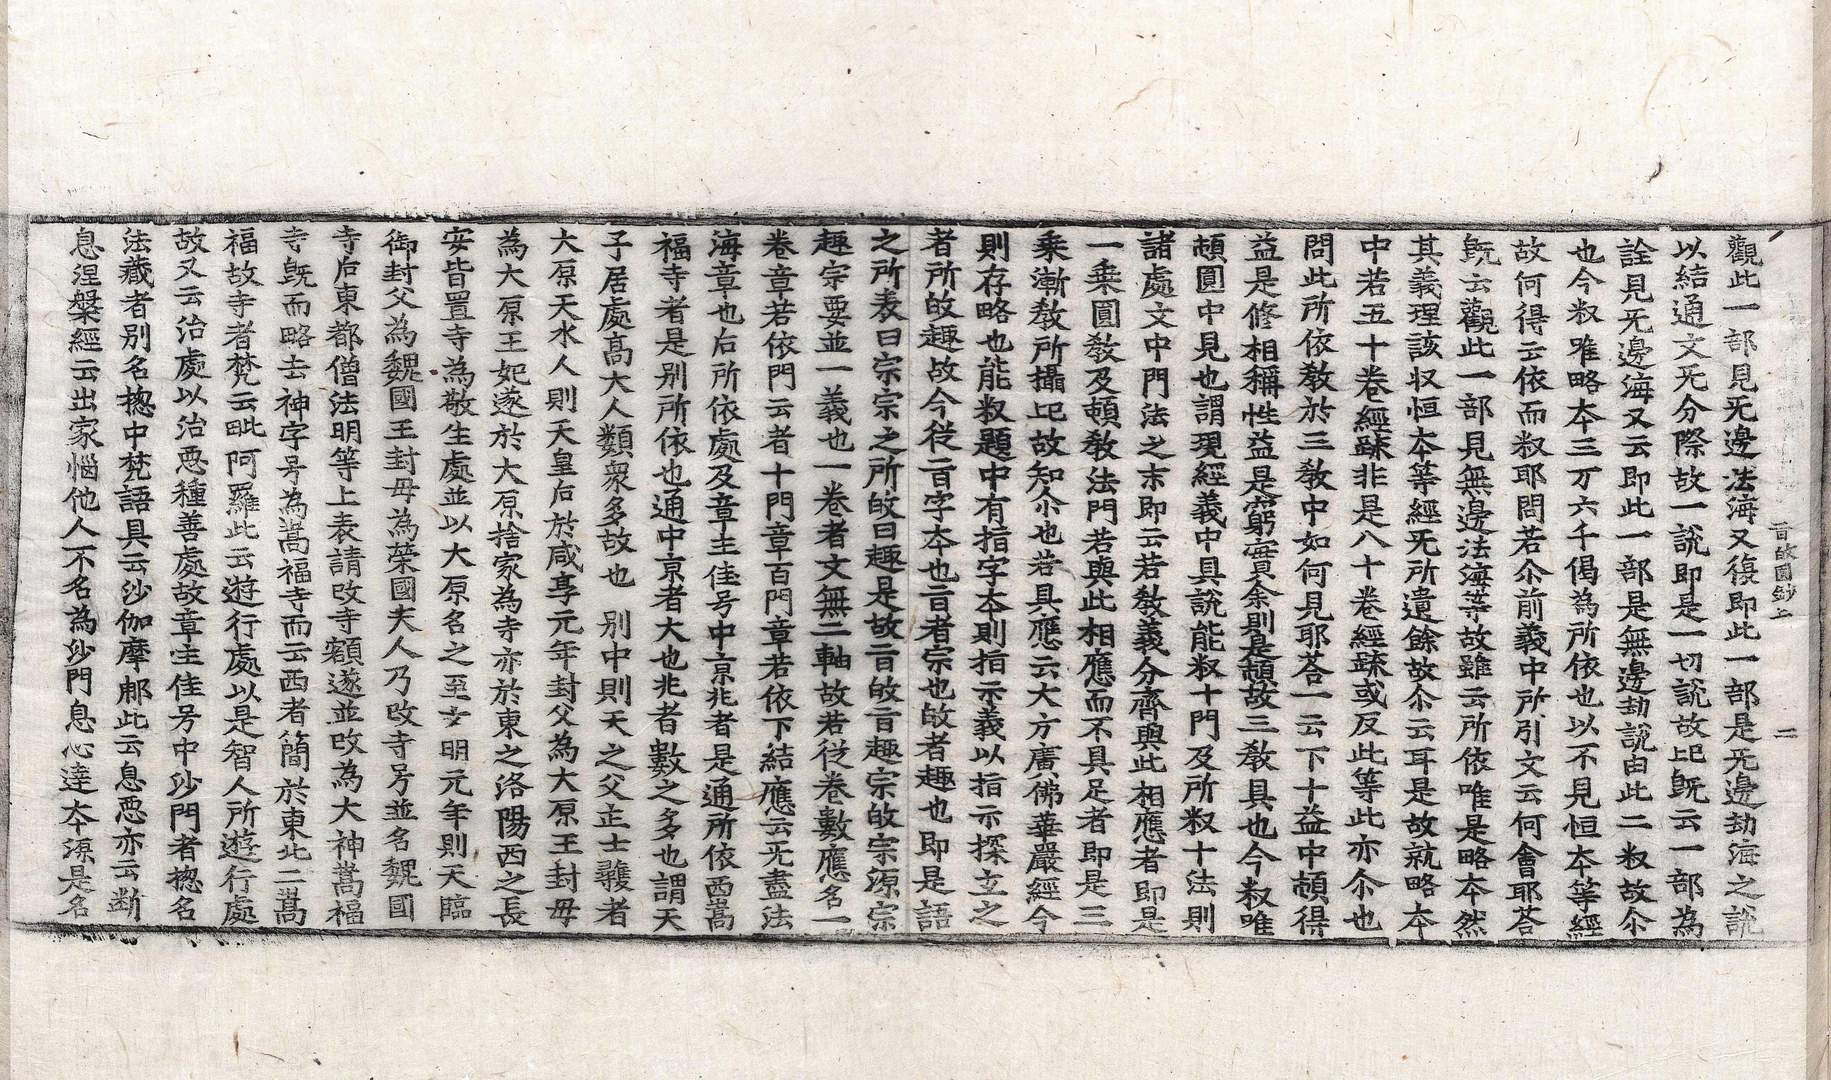 旨歸圓鈔上　二
觀此一部見无邊法海又復即此一部是无邊劫海之說
以結通文无分際故一說即是一切說故此旣云一部為
詮見无邊海又云即此一部是無邊劫說由此二㕘故尒
也今㕘唯略本三万六千偈為所依也以不見恒本等經
故何得云依而㕘耶問若尒前義中所引文云何會耶荅
旣云觀此一部見無邊法海等故雖云所依唯是略本然
其義理該収恒本等經无所遺餘故尒云耳是故就略本
中若五十卷經䟽非是八十卷經䟽或反此等此亦尒也
問此所依敎於三敎中如何見耶荅一云下十益中頓得
益是修相稱性益是窮實余則是頓故三敎具也今㕘唯
頓圓中見也謂現經義中具說能㕘十門及所㕘十法則
諸處文中門法之末即云若敎義分齊與此相應者即是
一乗圓敎及頓敎法門若與此相應而不具足者即是三
乗漸敎所攝此故知尒也若具應云大方廣佛華嚴經今
則存略也能㕘題中有指字本則指示義以指示探玄之
者所的趣故今従旨字本也旨者宗也的者趣也即是語
之所表曰宗宗之所的曰趣是故旨的旨趣宗的宗源宗
趣宗要並一義也一卷者文無二軸故若従卷數應名一
卷章若依門云者十門章百門章若依下結應云无盡法
海章也后所依處及章主佳号中京兆者是通所依西嵩
福寺者是別所依也通中京者大也兆者數之多也謂天
子居處髙大人類衆多故也　別中則天之父𤣥士彠者
大原天水人則天皇后於咸亨元年封父為大原王封母
為大原王妃遂於大原捨家為寺亦於東之洛陽西之長
安皆置寺為敬生處並以大原名之至文明元年則天臨
御封父為魏國王封母為榮國夫人乃改寺号並名魏國
寺后東都僧法明等上表請改寺額遂並改為大神嵩福
寺旣而略去神字号為嵩福寺而云西者簡於東此二嵩
福故寺者梵云毗阿羅此云遊行處以是智人所遊行處
故又云治處以治惡種善處故章主佳号中沙門者㧾名
法藏者别名㧾中梵語具云沙伽摩那此云息惡亦云断
息涅槃經云出家惱他人不名為沙門息心達本源是名